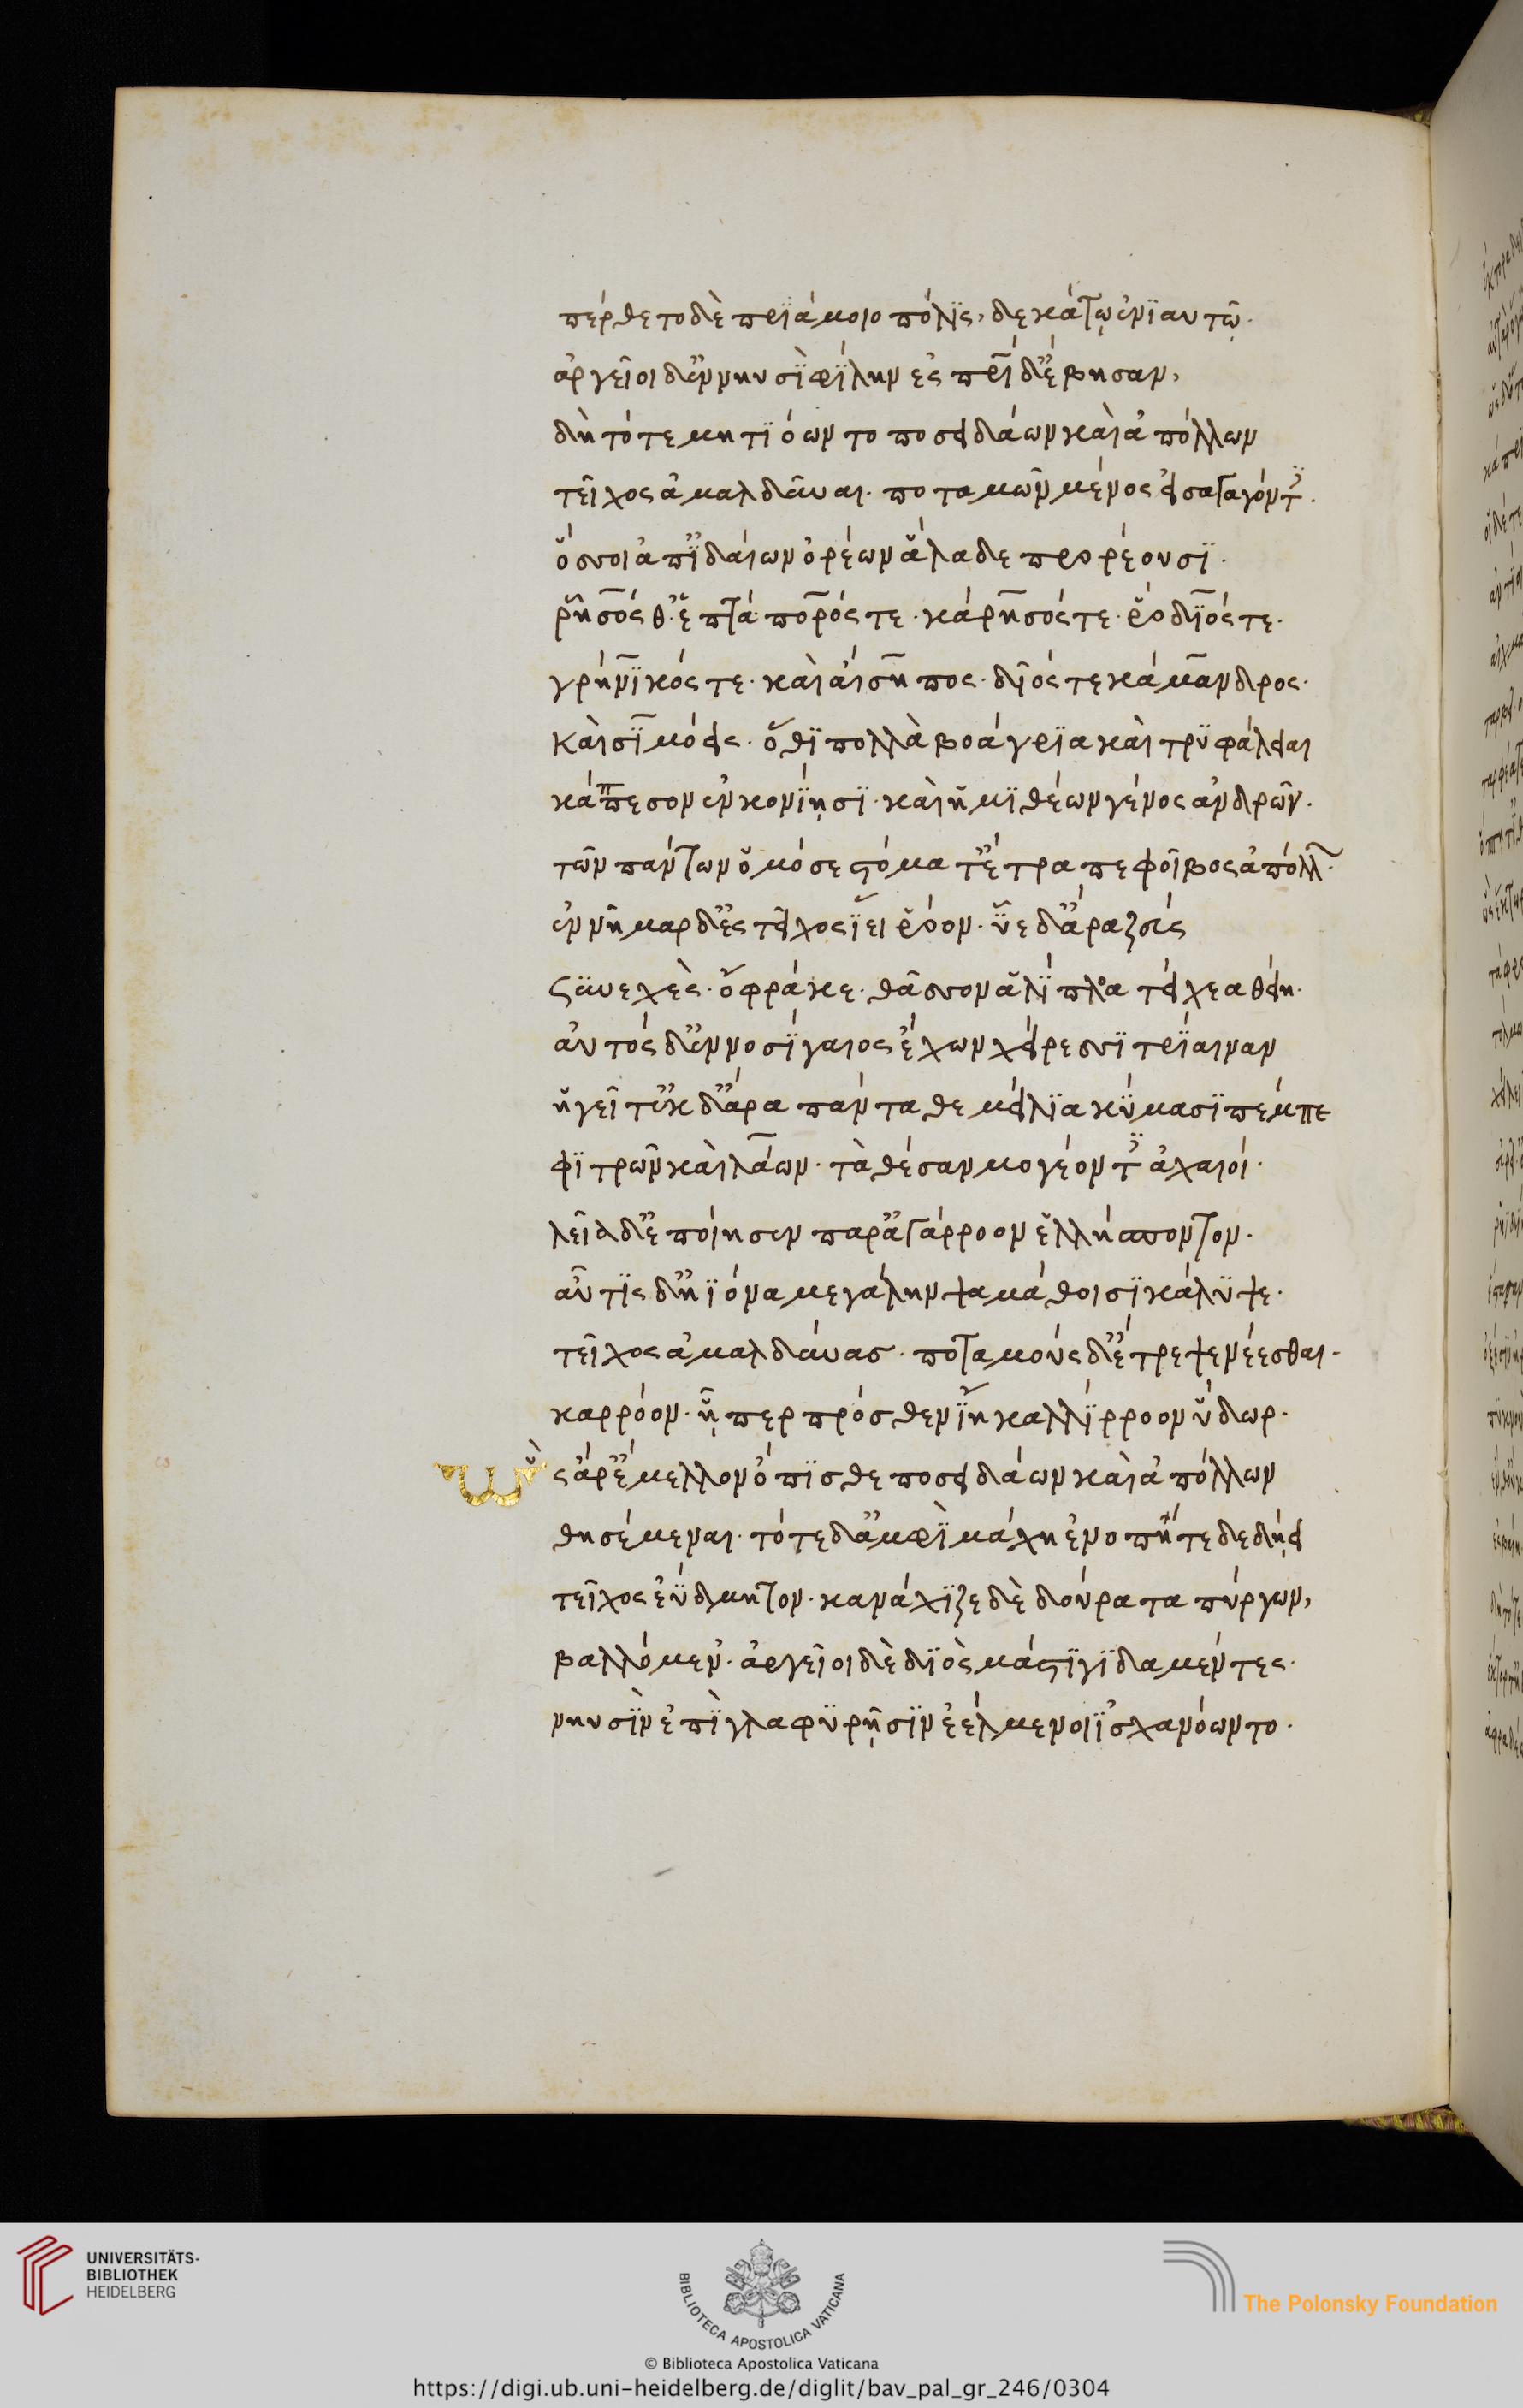 πέρθετο δὲ πριάμοιο πόλϊς, δεκάτῳ ἐνϊαυτῷ·
ἀργεῖοι δ' ἐν νηυσὶ φίλην ἐς πατρίδ' ἔβησαν,
δὴ τότε μητϊόωντο ποσειδάων καὶ ἀπόλλων
τεῖχος ἀμαλδῦναι· ποταμῶν μένος εἰσαγαγόντ·
ὅσσοι ἀπ' ἰδαίων ὀρέων ἅλα δε προρέουσϊ·
ῥῆσός θ' ἑπτάπορός τε· κάρησός τε· ῥοδϊός τε·
γρήνϊκός τε· καὶ αἴσηπος· δῖός τε κάμανδρος·
καὶ σϊμόεις· ὅθϊ πολλὰ βοάγρϊα καὶ τρϋφάλειαι
κάππεσον ἐν κονίῃσϊ· καὶ ἡμϊθέων γένος ἀνδρῶν·
τῶν πάντων ὁμόσε στόματ' ἔτραπε φοῖβος ἀπόλλ·
ἐννῆμαρ δ' ἐς τεῖχος ἵει ῥόον· ὗε δ' ἄρα ζεὺς
συνεχὲς· ὄφρά κε· θᾶσσον ἁλίπλοα τείχεα θείη·
αὐτός δ' ἐννοσίγαιος ἔχων χείρεσσϊ τρίαιναν
ἡγεῖτ' ἐκ δ' ἄρα πάντα θεμείλϊα κύμασϊ πέμπε
φϊτρῶν καὶ λάων· τὰ θέσαν μογέοντ ἀχαιοί·
λεῖα δ' ἐποίησεν παρ' ἀγάρροον ἑλλήσποντον·
αὖτϊς δ' ἠϊόνα μεγάλην ψαμάθοισϊ κάλϋψε·
τεῖχος ἀμαλδύνας· ποταμοὺς δ' ἔτρεψε νέεσθαι·
καρρόον· ᾗ περ πρόσθεν ἵη καλλίρροον ὕδωρ·
ὣς ἄρ' ἔμελλον ὄπϊσθε ποσειδάων καὶ ἀπόλλων
θησέμεναι· τότε δ' ἀμφὶ μάχη ἐνοπή τε δεδήει
τεῖχος ἐΰδμητον· κανάχϊζε δὲ δούρατα πύργων,
βαλλόμεν· ἀργεῖοι δὲ δϊὸς μάστϊγϊ δαμέντες·
νηυσὶν ἐπὶ γλαφϋρῇσϊν ἐελμένοι ἰσχανόωντο·
UNIVERSITÄTS-
BIBLIOTHEK
HEIDELBERG
BIBLIOTECA APOSTOLICA VATICANA
The Polonsky Foundation
© Biblioteca Apostolica Vaticana
https://digi.ub.uni-heidelberg.de/diglit/bav_pal_gr_246/0304